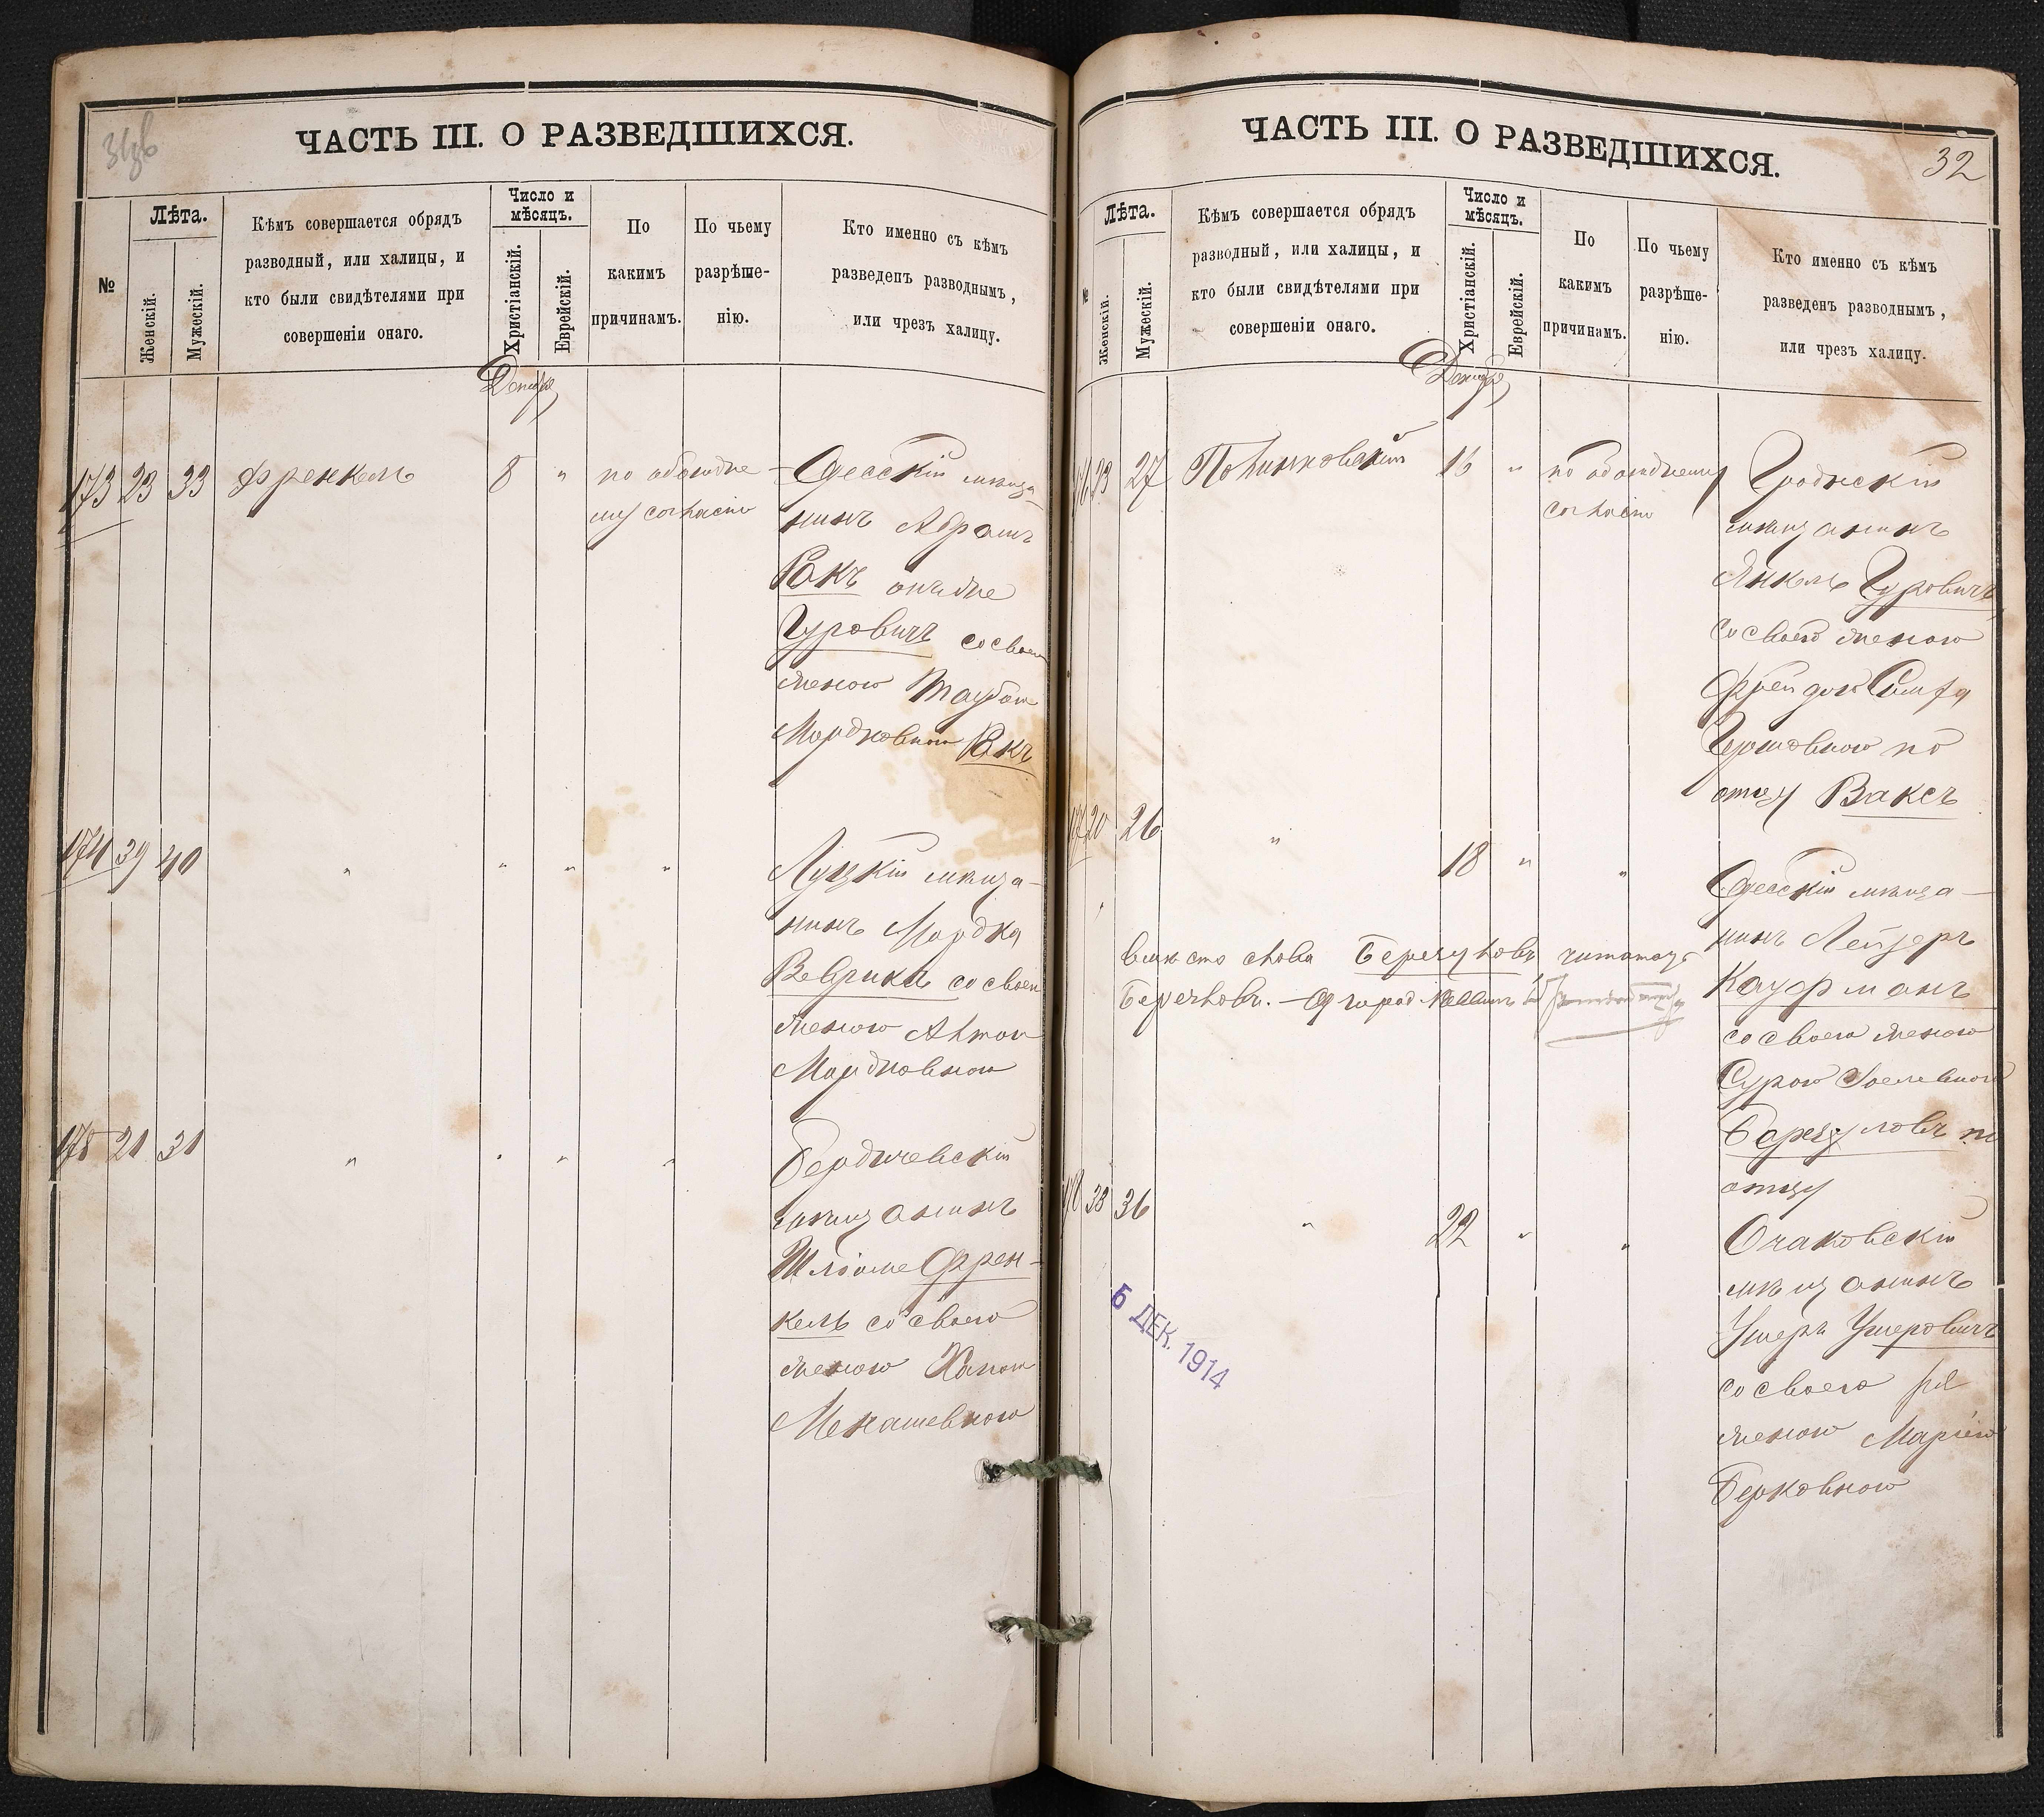 ЧАСТЬ III. О РАЗВЕДШИХСЯ.
№
Лѣта.
Женскій.
Мужескій.
Кѣмъ совершается обрядъ
разводный, или халицы, и
кто были свидѣтелями при
совершеніи онаго.
Число и
мѣсяцъ.
Христіанскій.
Еврейскій.
По
какимъ
причинамъ.
По чьему
разрѣше-
нію.
Кто именно съ кѣмъ
разведенъ разводнымъ,
или чрезъ халицу.
Декабрь
173 23 33 Френкель 8 " по обоюдне-
му согласію
Одесскій мѣща-
нинъ Абрамъ
Вакъ онъ же
Гуровичъ со своею
женою Таубою
Мордковною Вакъ
174 39 40 " " " "
Луцкій мѣща-
нинъ Мордка
со своею
женою
Мордковною
175 21 31 " " " "
Бердичевскій
мѣщанинъ
Шліоме Френ-
кель со своею
женою Ханою
Менашевною
ЧАСТЬ III. О РАЗВЕДШИХСЯ.
32
№
Лѣта.
Женскій.
Мужескій.
Кѣмъ совершается обрядъ
разводный, или халицы, и
кто были свидѣтелями при
совершеніи онаго.
Число и
мѣсяцъ.
Христіанскій.
Еврейскій.
По
какимъ
причинамъ.
По чьему
разрѣше-
нію.
Кто именно съ кѣмъ
разведенъ разводнымъ,
или чрезъ халицу.
Декабрь
176 23 27 Полинковскій 16 " по обоюдному
согласію
Гродскій
мѣщанинъ
Янкель Гуровичъ
со своею женою
Фрейдою Сима
Гершовною по
отцу Ваксъ
177 20 26 " 18 " "
Одесскій мѣща-
нинъ Лейзеръ
Кауфманъ
со своею женою
Сурою Іоселевною
по
отцу
вмѣсто слова читать
178 33 36 " 22 " "
Очаковскій
мѣщанинъ
Ушеръ Ушеровичъ
со своею
женою Маріею
Берковною
5 ДЕК. 1914